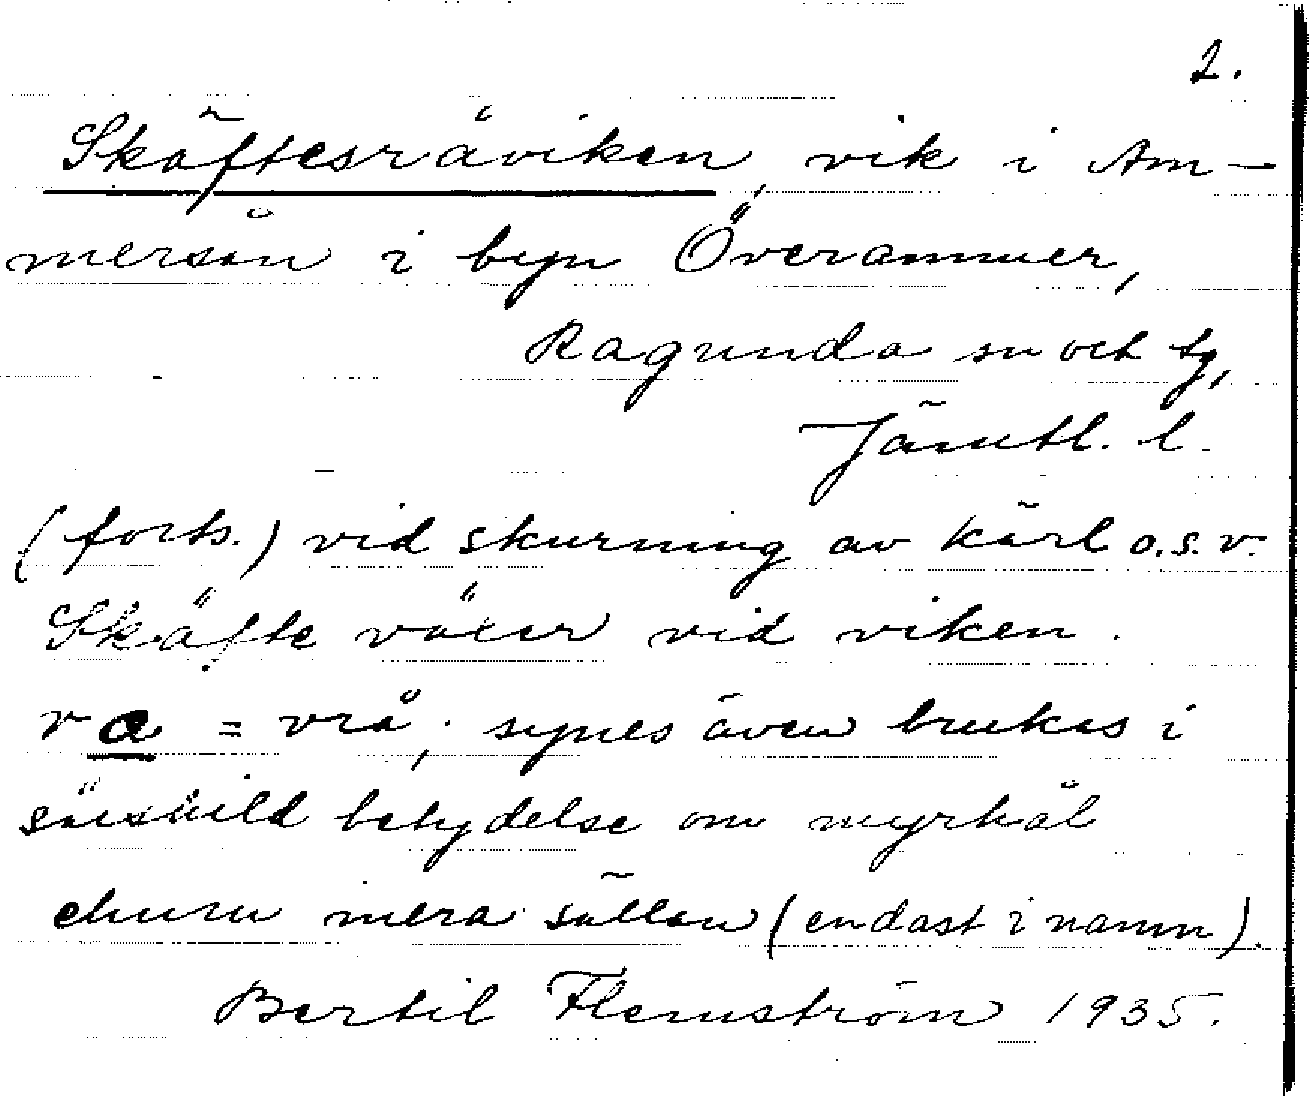 2.
Skäftesråviken, vik i Am-
mersån i byn Överammer,
Ragunda sn och tg,
Jämtl. l.
(forts.) vid skurning av kärl o.s.v.
Skäfte växer vid viken.
ra = vrå; synes även brukas i
särskild betydelse om myrhål
ehuru mera sällan (endast i namn).
Bertil Flemström 1935.